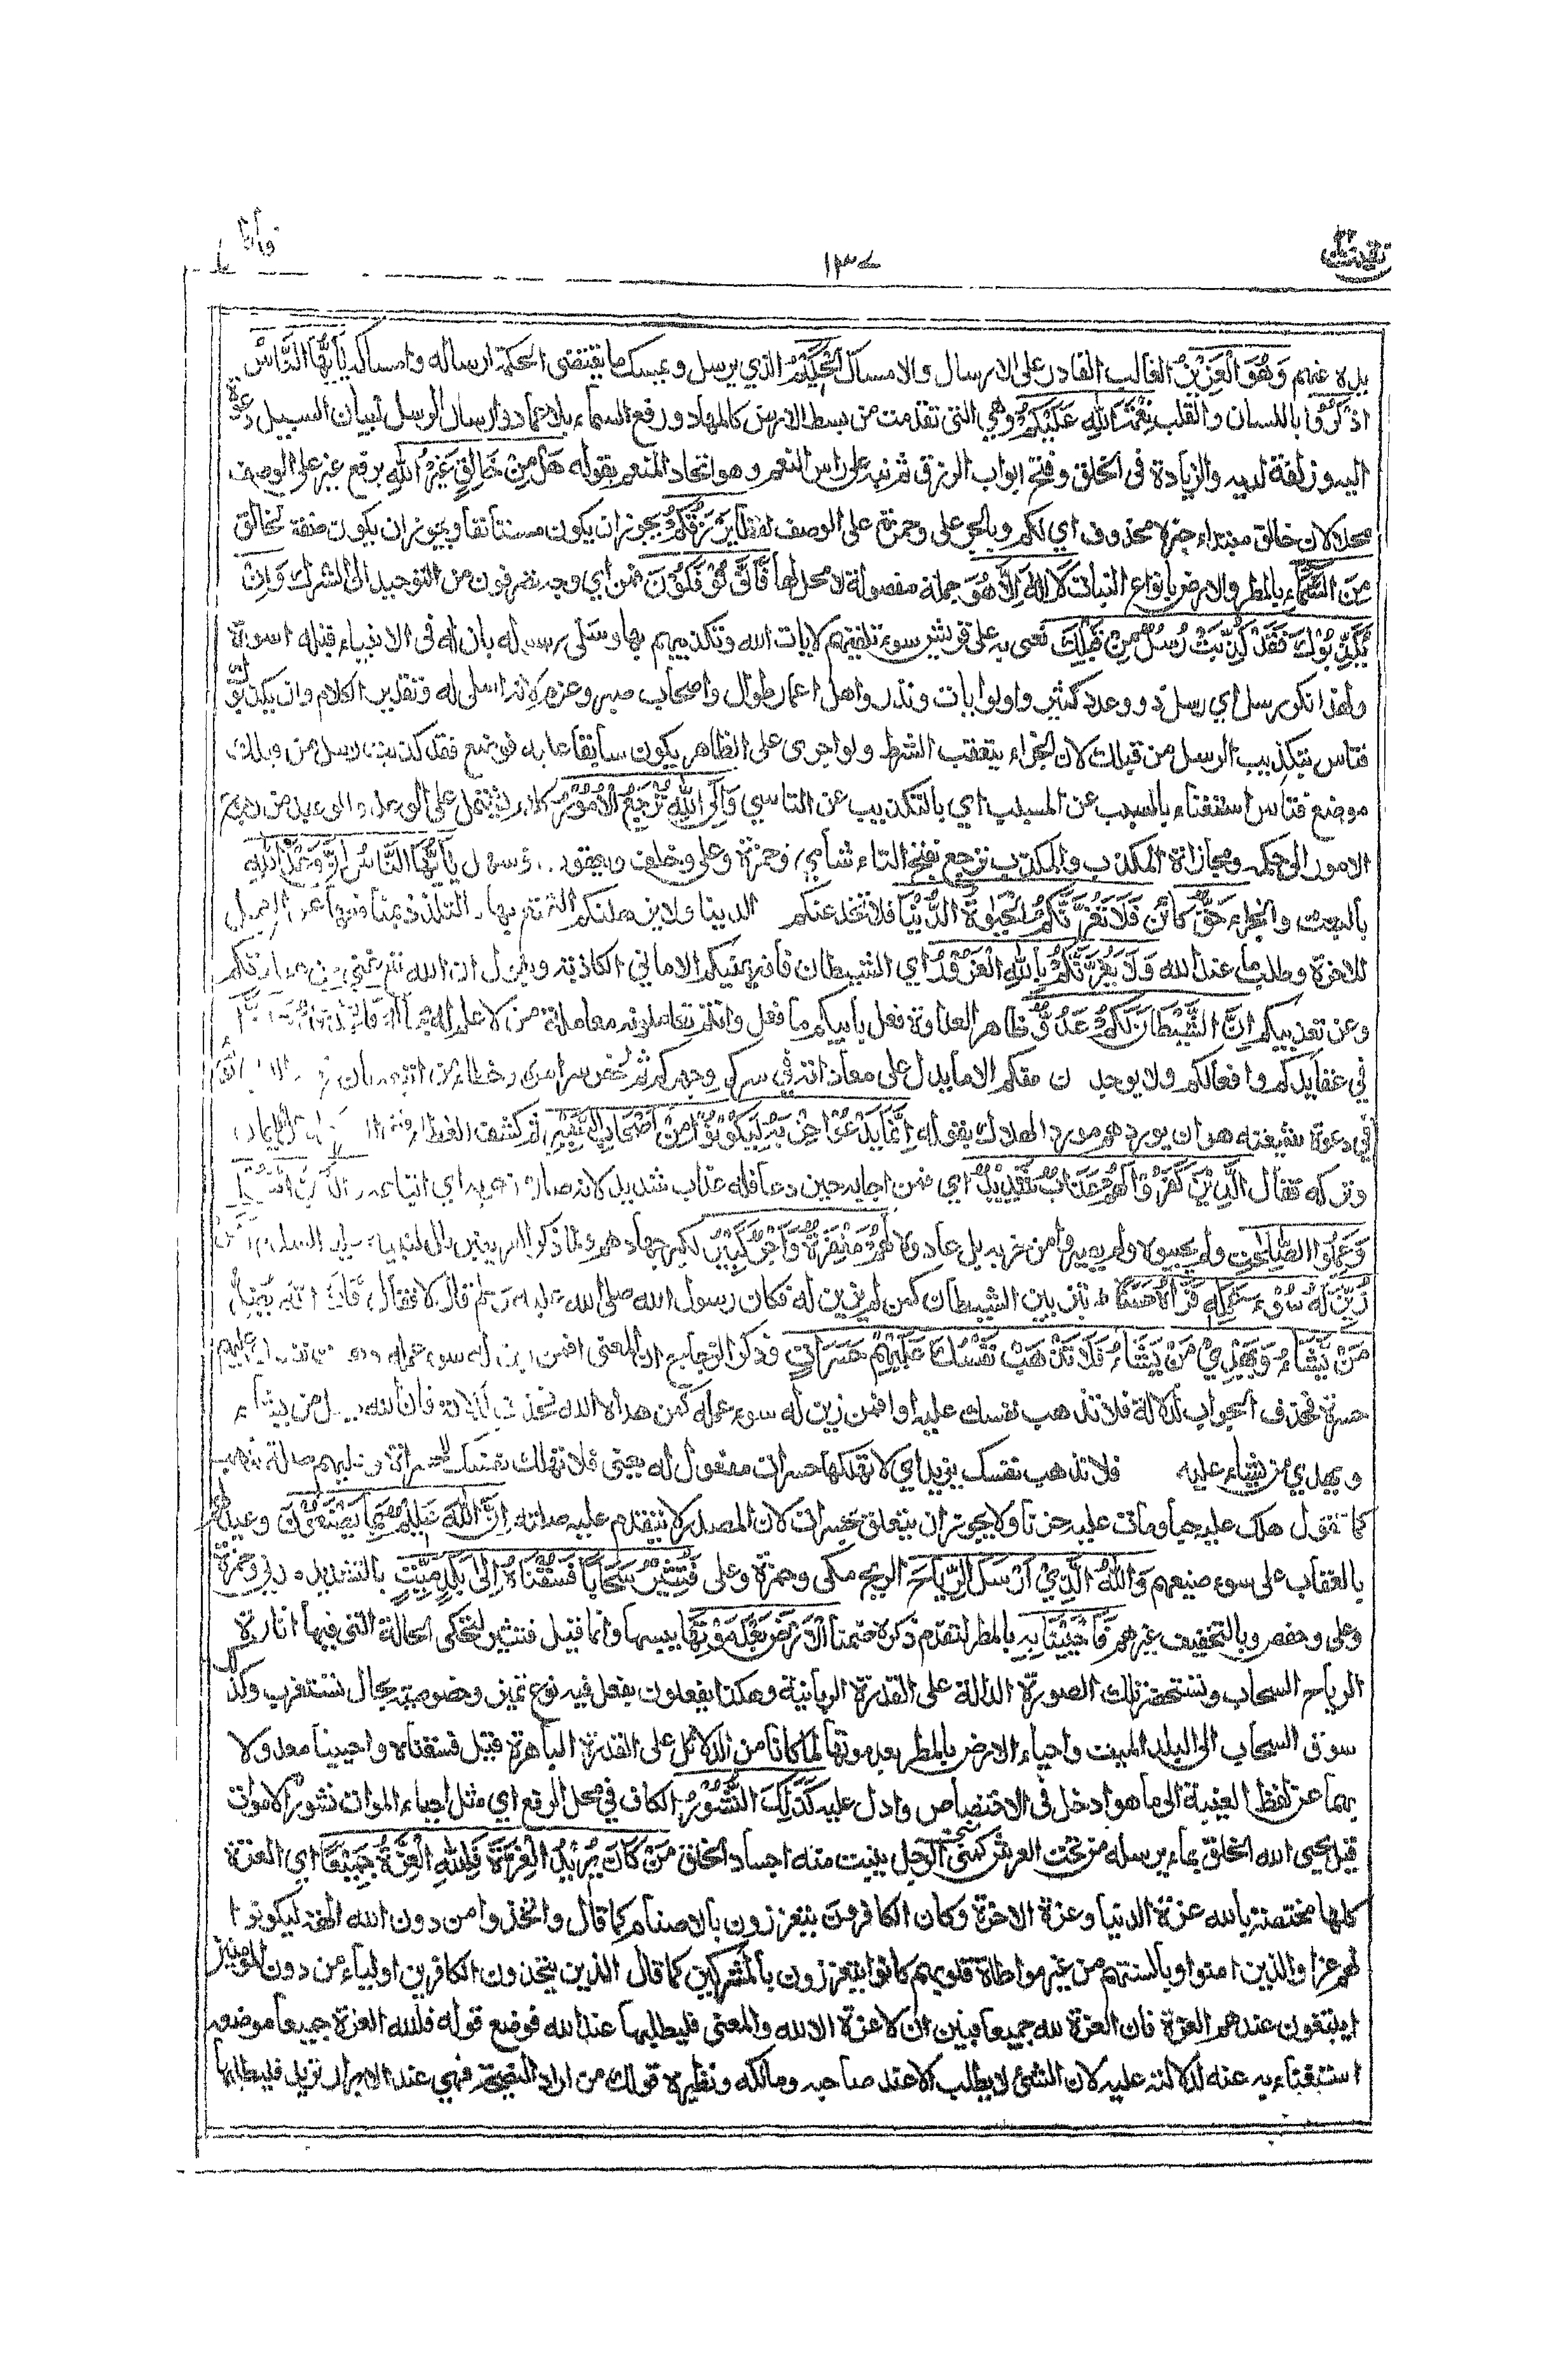 ١٣٤
يده عنهم وَهُوَ الْعَزِيْزُ الغالب القادر على الارسال والامساك الْحَكِيْمُ الذي يرسل ويمسك ما يقتضى الحكمة ارساله وامساكه يٰاَيُّهَا النَّاسُ
اذْكُرُوْا باللسان والقلب نِعْمَتَ اللّٰهِ عَلَيْكُمْ وهي التى تقدمت من بسط الارض كالمهاد ورفع السماء بلا عماد وارسال الرسل لبيان السبيل دعوة
اليه وزلفة لديه والزيادة فى الخلق وفتح ابواب الرزق ثم نبه على راس النعم وهو اتحاد المنعم بقوله هَلْ مِنْ خَالِقٍ غَيْرُ اللّٰهِ برفع غير على الوصف
محلا لان خالق مبتداء خبره محذوف اي لكم وبالجر على وحمزة على الوصف لفظا يَرْزُقُكُمْ يجوز ان يكون مستأنفا ويجوز ان يكون صفة لخالق
مِنَ السَّمَاءِ بالمطر والارض بانواع النبات لَا اِلٰهَ اِلَّا هُوَ جملة مفصولة لا محل لها فَاَنّٰى تُؤْفَكُوْنَ فمن اي وجه تصرفون من التوحيد الى الشرك وَاِنْ
يُّكَذِّبُوْكَ فَقَدْ كُذِّبَتْ رُسُلٌ مِّنْ قَبْلِكَ نعى به على قريش سوء تلقيهم لايات الله وتكذيبهم بها وسلى رسوله بان له فى الانبياء قبله اسوة
ولهذا نكر رسل اي رسل ذوو عدد كثير واولوا يات ونذر واهل اعمار طوال واصحاب صبر وعزم لانه اسلى له وتقدير الكلام وان يكذبوك
فتاس بتكذيب الرسل من قبلك لان الجزاء يتعقب الشرط ولو اجرى على الظاهر يكون سابقا عليه فوضع فقد كذبت رسل من قبلك
موضع فتاس استغناء بالسبب عن المسبب اي بالتكذيب عن التاسي وَاِلَى اللّٰهِ تُرْجَعُ الْاُمُوْرُ كلام يشتمل على الوعد والوعيد من رجوع
الامور الى حكمه ومجازاة المكذب والمكذب ترجع بفتح التاء شامي وحمزة وعلى وخلف ويعقوب وسهل يٰاَيُّهَا النَّاسُ اِنَّ وَعْدَ اللّٰهِ
بالبعث والجزاء حَقٌّ كائن فَلَا تَغُرَّنَّكُمُ الْحَيٰوةُ الدُّنْيَا فلا تخدعنكم الدنيا ولا يذهلنكم التمتع بها والتلذذ بمنافعها عن العمل
للاخرة وطلب ما عند الله وَلَا يَغُرَّنَّكُمْ بِاللّٰهِ الْغَرُوْرُ اي الشيطان فانه يمنيكم الامانى الكاذبة ويقول ان الله غني عن عبادتكم
وعن تعذيبكم اِنَّ الشَّيْطَانَ لَكُمْ عَدُوٌّ ظاهر العداوة فعل بابيكم ما فعل وانتم تعاملونه معاملة من لا علم له بحاله فَاتَّخِذُوْهُ عَدُوًّا
في عقايدكم وافعالكم ولا يوجدن منكم الا ما يدل على معاداته في سركم وجهركم ثم لخص سر امره وخطاء من اتبعه بان
في دعوة شيعته هو ان يوردهم مورد الهلاك بقوله اِنَّمَا يَدْعُوْا حِزْبَهٗ لِيَكُوْنُوْا مِنْ اَصْحَابِ السَّعِيْرِ ثم كشف الغطاء
وتركه فقال الَّذِيْنَ كَفَرُوْا لَهُمْ عَذَابٌ شَدِيْدٌ اي فمن اجابه حين دعا فله عذاب شديد لانه صار من حزبه اي اتباعه
وَعَمِلُوا الصّٰلِحٰتِ ولم يجيبوه ولم يصيروا من حزبه بل عادوه لَهُمْ مَغْفِرَةٌ وَّاَجْرٌ كَبِيْرٌ لكبر جهادهم ولما ذكر الفريقين قال لنبيه عليه السلام
زُيِّنَ لَهٗ سُوْءُ عَمَلِهٖ فَرَاٰهُ حَسَنًا بتزيين الشيطان كمن لم يزين له فكان رسول الله صلى الله عليه وسلم قال لا فقال فَاِنَّ اللّٰهَ يُضِلُّ
مَنْ يَّشَاءُ وَيَهْدِيْ مَنْ يَّشَاءُ فَلَا تَذْهَبْ نَفْسُكَ عَلَيْهِمْ حَسَرَاتٍ وذكر الزجاج ان المعنى افمن زين له سوء عمله ذهبت نفسك عليهم
حسرة فحذف الجواب لدلالة فلا تذهب نفسك عليه او افمن زين له سوء عمله كمن هداه الله فحذف لدلالة فان الله يضل من يشاء
ويهدي من يشاء عليه فلا تذهب نفسك يزيد اي لا تهلكها حسرات مفعول له يعنى فلا تهلك نفسك للحسرات وعليهم صلة تذهب
كما تقول هلك عليه حبا ومات عليه حزنا ولا يجوز ان يتعلق بحسرات لان المصدر لا يتقدم عليه صلته اِنَّ اللّٰهَ عَلِيْمٌ بِمَا يَصْنَعُوْنَ وعيد لهم
بالعقاب على سوء صنيعهم وَاللّٰهُ الَّذِيْ اَرْسَلَ الرِّيَاحَ الريح مكى وحمزة وعلى فَتُثِيْرُ سَحَابًا فَسُقْنَاهُ اِلٰى بَلَدٍ مَّيِّتٍ بالتشديد مدني وحمزة
وعلى وحفص وبالتخفيف غيرهم فَاَحْيَيْنَا بِهِ بالمطر لتقدم ذكره ضمنا الْاَرْضَ بَعْدَ مَوْتِهَا يبسها وانما قيل فتثير لتحكى الحالة التى فيها اثارة
الرياح السحاب وتستحضر تلك الصورة الدالة على القدرة الربانية وهكذا يفعلون بفعل فيه نوع تميز وخصوصية بحال تستغرب وكذلك
سوق السحاب الى البلد الميت واحياء الارض بالمطر بعد موتها لما كانا من الدلائل على القدرة الباهرة قيل فسقناه واحيينا معدولا
بهما عن لفظ الغيبة الى ما هو ادخل فى الاختصاص وادل عليه كَذٰلِكَ النُّشُوْرُ الكاف في محل الرفع اي مثل احياء الموات نشور الاموات
قيل يحيى الله الخلق بماء يرسله من تحت العرش كمنى الرجل ينبت منه اجساد الخلق مَنْ كَانَ يُرِيْدُ الْعِزَّةَ فَلِلّٰهِ الْعِزَّةُ جَمِيْعًا اي العزة
كلها مختصة بالله عزة الدنيا وعزة الاخرة وكان الكافرون يتعززون بالاصنام كما قال واتخذوا من دون الله الهة ليكونوا
لهم عزا والذين امنوا بالسنتهم من غير مواطاة قلوبهم كانوا يتعززون بالمشركين كما قال الذين يتخذون الكافرين اولياء من دون المومنين
ايبتغون عندهم العزة فان العزة لله جميعا فبين ان لا عزة الا لله والمعنى فليطلبها عند الله فوضع قوله فلله العزة جميعا موضعه
استغناء به عنه لدلالته عليه لان الشئ لا يطلب الا عند صاحبه ومالكه ونظيره قولك من اراد النصيحة فهي عند الابرار تريد فليطلبها